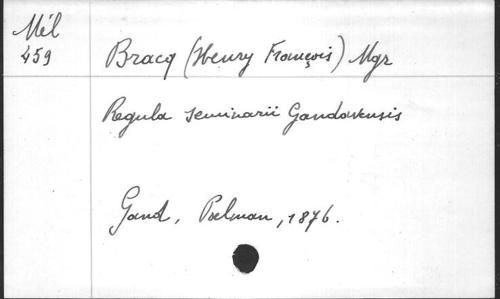 Mél
459
Bracq (Henry François) Mgr
Regula seminarii Gandavensis
Gand, Poelman, 1876.